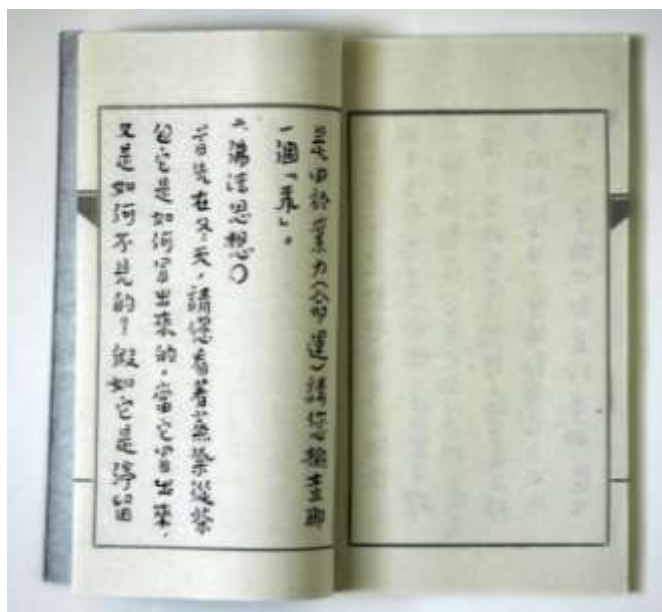 是由於業力(命運)請您抽支聊
一個「菜」。
六佛法思想〇
首先在冬天,請您看著蒸氣從茶
包它是如何冒出來的,當它冒出來,
又是如何不見的?假如它是停留